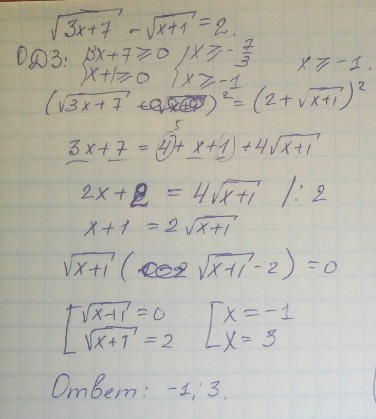 √(3x+7) - √(x+1) = 2.
ОДЗ: { 3x+7 ⩾ 0 { x ⩾ -7/3
{ x+1 ⩾ 0 { x ⩾ -1 x ⩾ -1.
(√(3x+7))² = (2+√(x+1))²
5
3x+7 = (4+x+1)+4√(x+1)
2x+2 = 4√(x+1) /: 2
x+1 = 2√(x+1)
√(x+1) (√(x+1) - 2) = 0
[ √(x+1) = 0 [ x = -1
[ √(x+1) = 2 [ x = 3
Ответ: -1; 3.